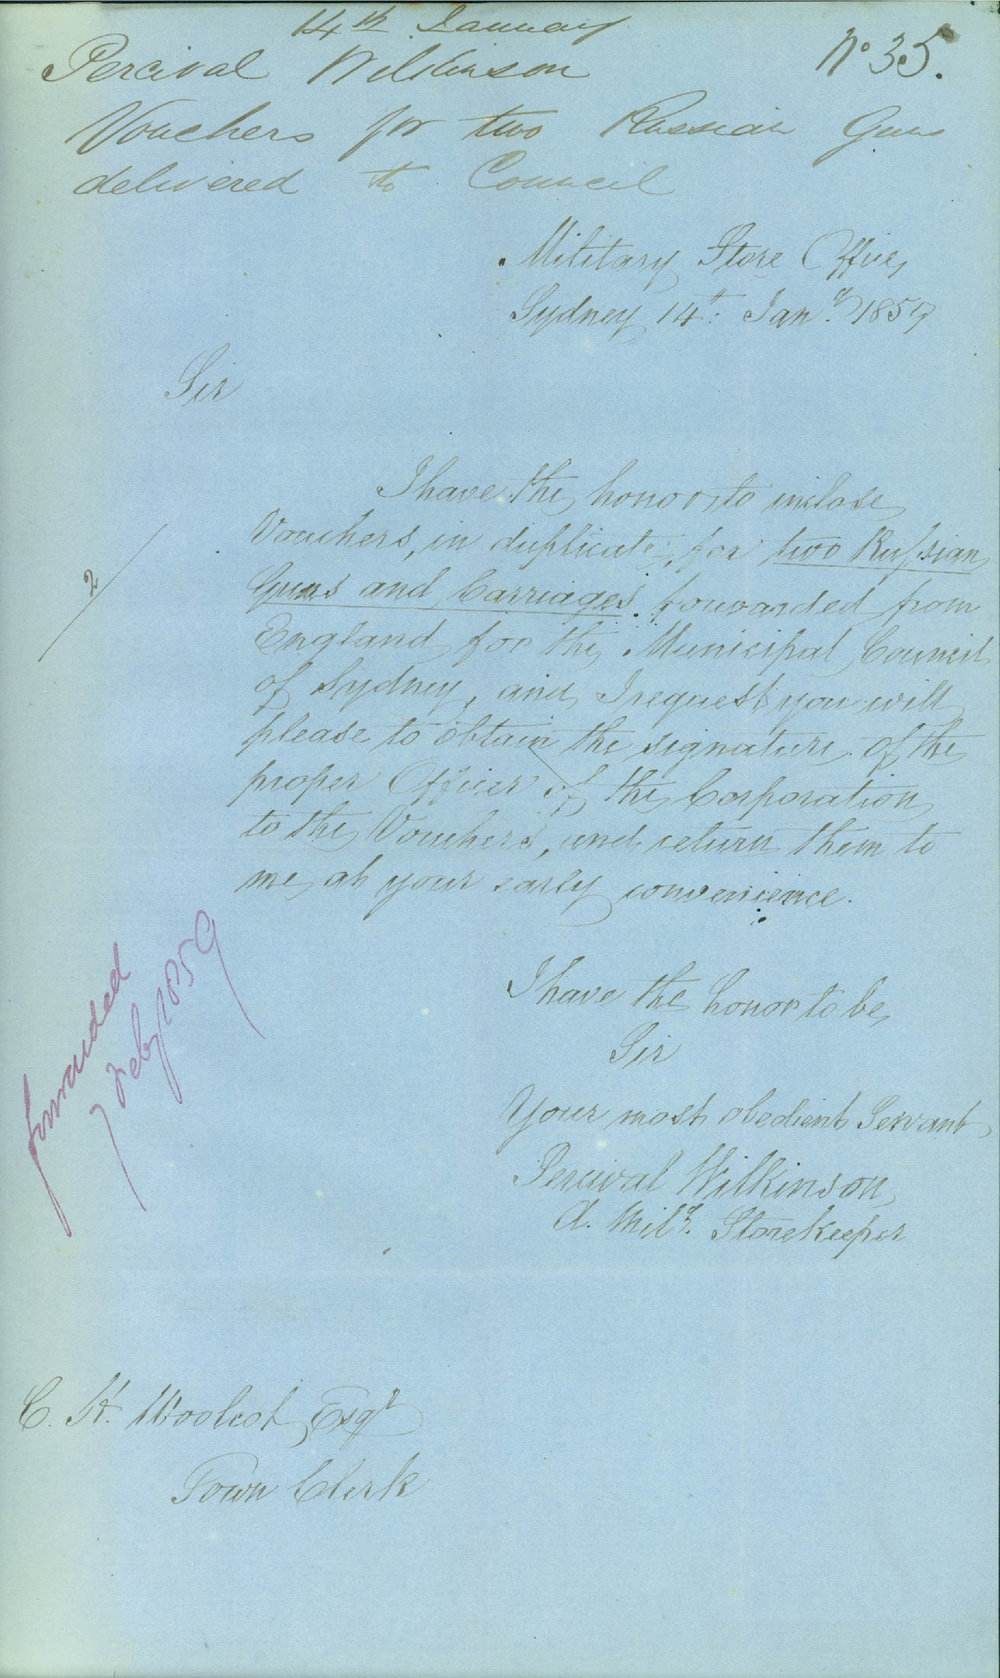 14th January
Percival Wilkinson No 35.
Vouchers for two Russian Guns
delivered to Council
Military Store Office,
Sydney, 14th: Jany. 1859
Sir
I have the honor to inclose
Vouchers, in duplicate, for two Russian
2
Guns and Carriages, forwarded from
England for the Municipal Council
of Sydney, and I request you will
please to obtain the signature of the
proper Officer of the Corporation
to the Vouchers, and return them to
me at your early convenience.
I have the honor to be,
Sir
Your most obedient Servant
Percival Wilkinson
A. Mily. Storekeeper
forwarded
7 Feby 1859
C. H. Woolcot Esqr
Town Clerk